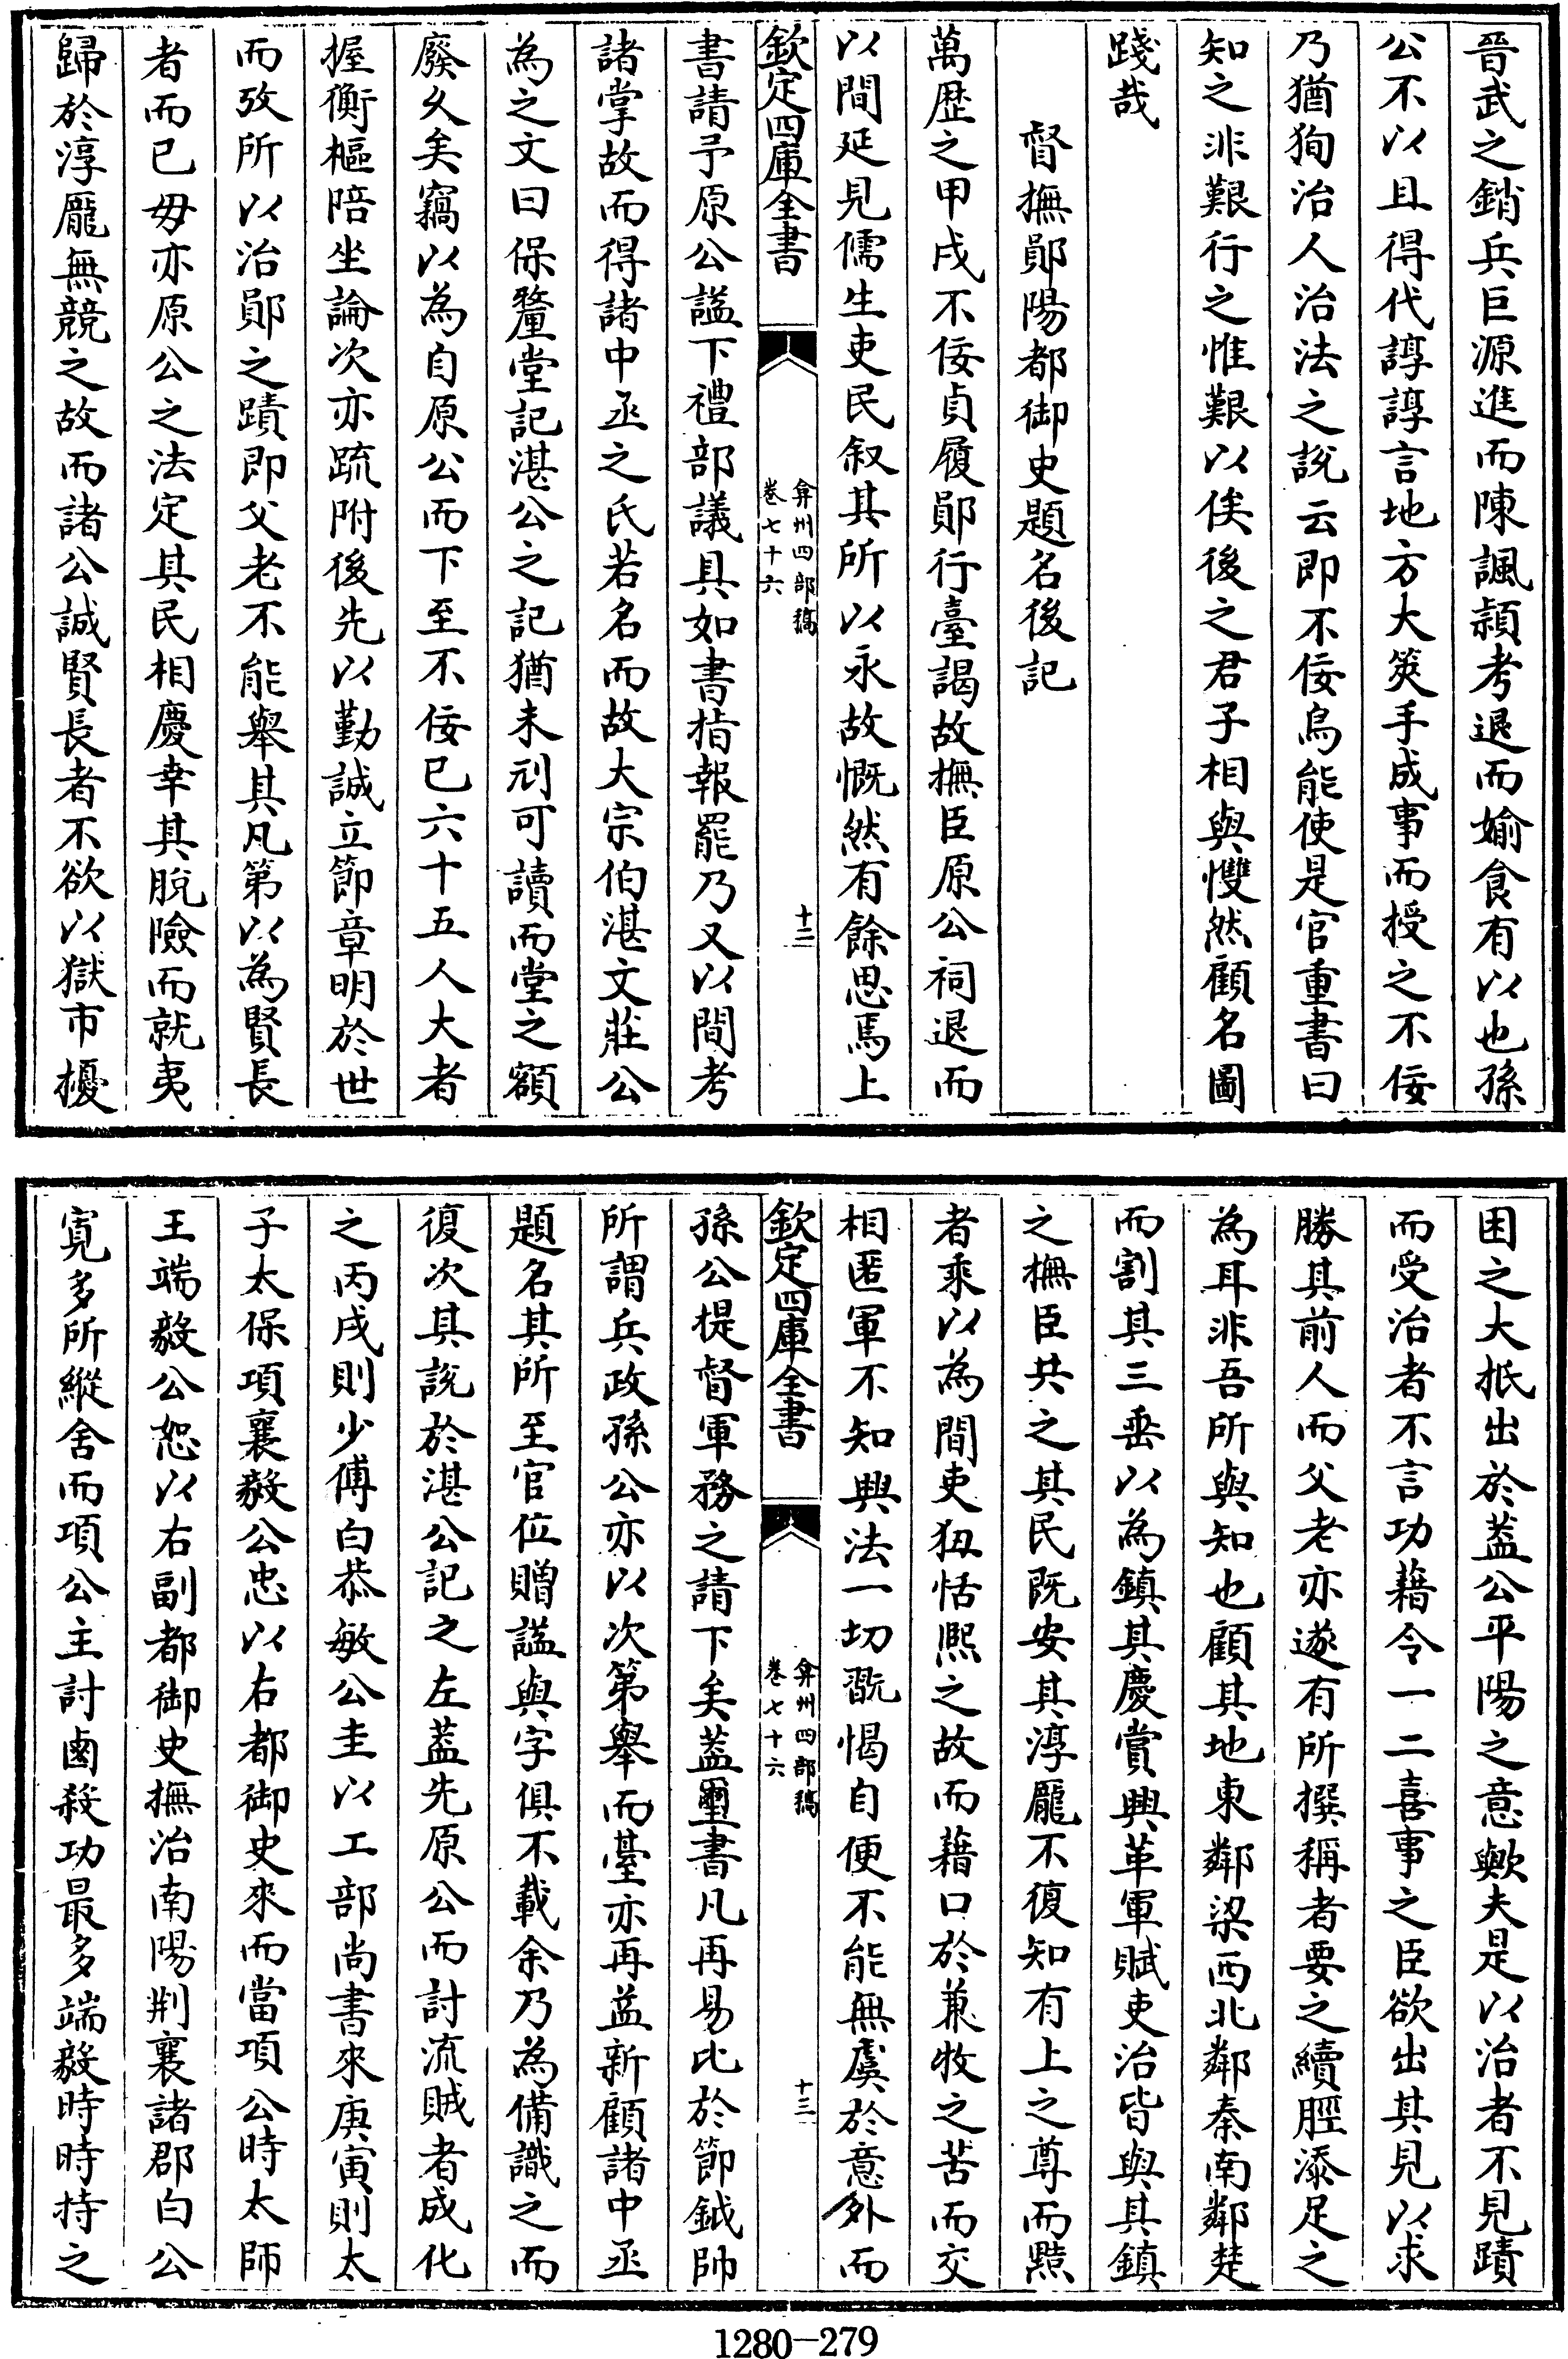 晉武之銷兵巨源進而陳諷潁考退而媮食有以也孫
公不以且得代諄諄言地方大筴手成事而授之不佞
乃猶狥治人治法之說云即不佞烏能使是官重書曰
知之非艱行之惟艱以俟後之君子相與慢然顧名圖
踐哉
督撫鄖陽都御史題名後記
萬厯之甲戌不佞貞履鄖行臺謁故撫臣原公祠退而
以間延見儒生吏民叙其所以永故慨然有餘思焉上
欽定四庫全書
弇州四部稿
卷七十六
十二
書請予原公諡下禮部議具如書指報罷乃又以間考
諸掌故而得諸中丞之氏若名而故大宗伯湛文莊公
為之文曰保釐堂記湛公之記猶未刓可讀而堂之額
廢乆矣竊以為自原公而下至不佞已六十五人大者
握衡樞陪坐論次亦疏附後先以勤誠立節章明於世
而攷所以治鄖之蹟即父老不能舉其凡第以為賢長
者而已毋亦原公之法定其民相慶幸其脫險而就夷
歸於淳龎無競之故而諸公誠賢長者不欲以獄市擾
困之大抵出於葢公平陽之意歟夫是以治者不見蹟
而受治者不言功藉令一二喜事之臣欲出其見以求
勝其前人而父老亦遂有所撰稱者要之續脛添足之
為耳非吾所與知也顧其地東鄰梁西北鄰秦南鄰楚
而割其三垂以為鎮其慶賞興革軍賦吏治皆與其鎮
之撫臣共之其民既安其淳龎不復知有上之尊而黠
者乘以為間吏狃恬熙之故而藉口於兼牧之苦而交
相匿軍不知興法一切翫愒自便不能無虞於意外而
欽定四庫全書
弇州四部稿
卷七十六
十三
孫公提督軍務之請下矣葢璽書凡再易比於節鉞帥
所謂兵政孫公亦以次第舉而臺亦再益新顧諸中丞
題名其所至官位贈諡與字俱不載余乃為備識之而
復次其說於湛公記之左葢先原公而討流賊者成化
之丙戌則少傅白恭敏公圭以工部尚書來庚寅則太
子太保項襄毅公忠以右都御史來而當項公時太師
王端毅公恕以右副都御史撫治南陽荆襄諸郡白公
寛多所縱舍而項公主討鹵殺功最多端毅時時持之
1280-279